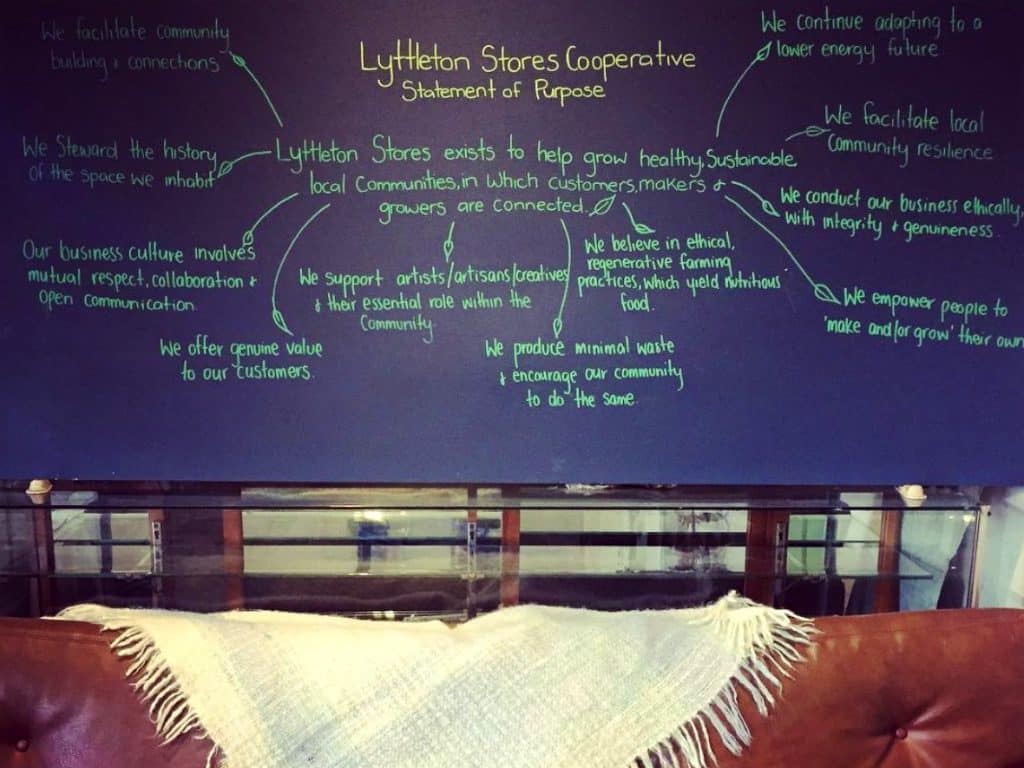 Lyttleton Stores Cooperative
Statement of Purpose
Lyttleton Stores exists to help grow healthy, Sustainable
local Communities, in which customers, makers &
growers are connected.
We facilitate community
building & connections
We Steward the history
of the space we inhabit
Our business culture involves
mutual respect, collaboration &
open communication.
We offer genuine value
to our customers.
We support artists/artisans/creatives
& their essential role within the
Community.
We produce minimal waste
& encourage our community
to do the same.
We believe in ethical,
regenerative farming
practices, which yield nutritious
food.
We continue adapting to a
lower energy future
We facilitate local
Community resilience
We conduct our business ethically,
with integrity & genuineness.
We empower people to
'make and/or grow' their own